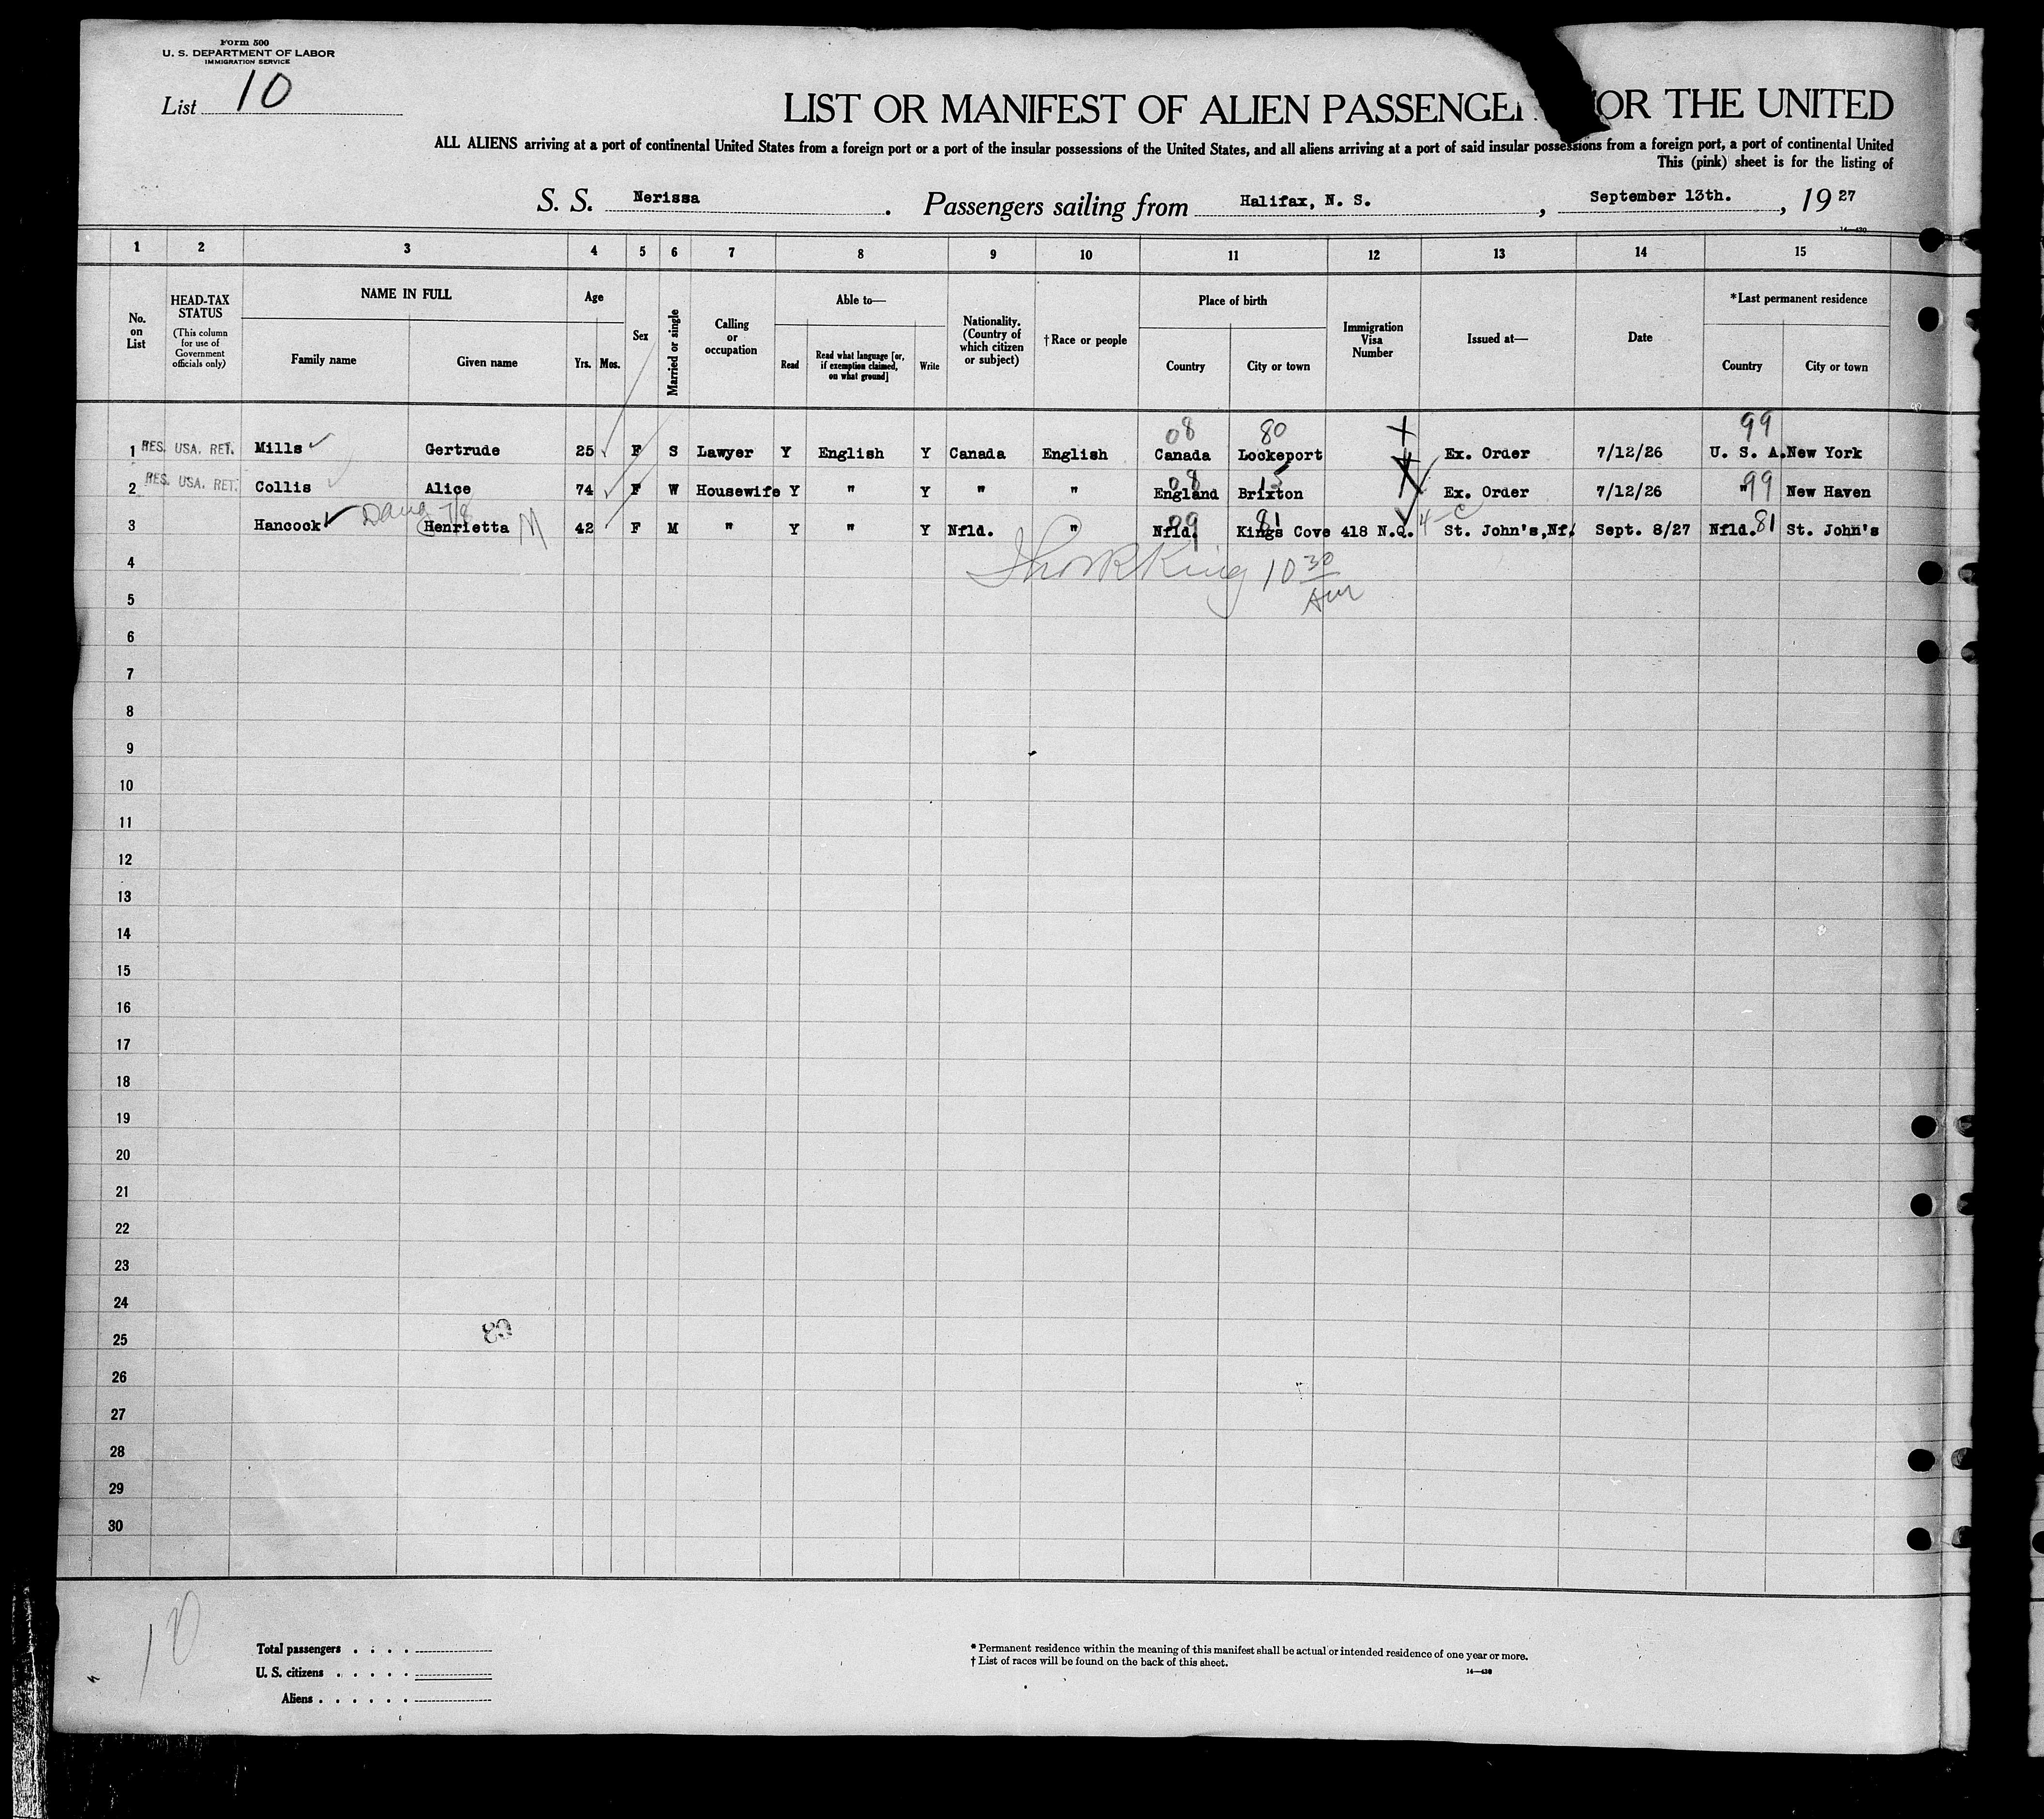 Form 500
U. S. DEPARTMENT OF LABOR
IMMIGRATION SERVICE
List 10
LIST OR MANIFEST OF ALIEN PASSENGER OR THE UNITED
ALL ALIENS arriving at a port of continental United States from a foreign port or a port of the insular possessions of the United States, and all aliens arriving at a port of said insular possessions from a foreign port, a port of continental United
This (pink) sheet is for the listing of
S. S. Nerissa. Passengers sailing from Halifax, N. S., September 13th., 1927
14—430
1 2 3 4 5 6 7 8 9 10 11 12 13 14 15
No. on List
HEAD-TAX STATUS
(This column for use of Government officials only)
NAME IN FULL
Family name
Given name
Age
Yrs. Mos.
Sex
Married or single
Calling or occupation
Able to—
Read
Read what language [or, if exemption claimed, on what ground]
Write
Nationality. (Country of which citizen or subject)
†Race or people
Place of birth
Country
City or town
Immigration Visa Number
Issued at—
Date
*Last permanent residence
Country
City or town
08 80 99
1 RES. USA. RET. Mills Gertrude 25 F S Lawyer Y English Y Canada English Canada Lockeport Ex. Order 7/12/26 U. S. A. New York
08 15 99
2 RES. USA. RET. Collis Alice 74 F W Housewife Y " Y " " England Brixton Ex. Order 7/12/26 " New Haven
09 81 4-C 81
3 Hancock Henrietta M 42 F M " Y " Y Nfld. " Nfld. Kings Cove 418 N.Q. St. John's, Nf. Sept. 8/27 Nfld. St. John's
4 King 10 30 AM
5
6
7
8
9
10
11
12
13
14
15
16
17
18
19
20
21
22
23
24
25
26
27
28
29
30
10
Total passengers . . . .
U. S. citizens . . . . .
Aliens . . . . . .
* Permanent residence within the meaning of this manifest shall be actual or intended residence of one year or more.
† List of races will be found on the back of this sheet.
14—430